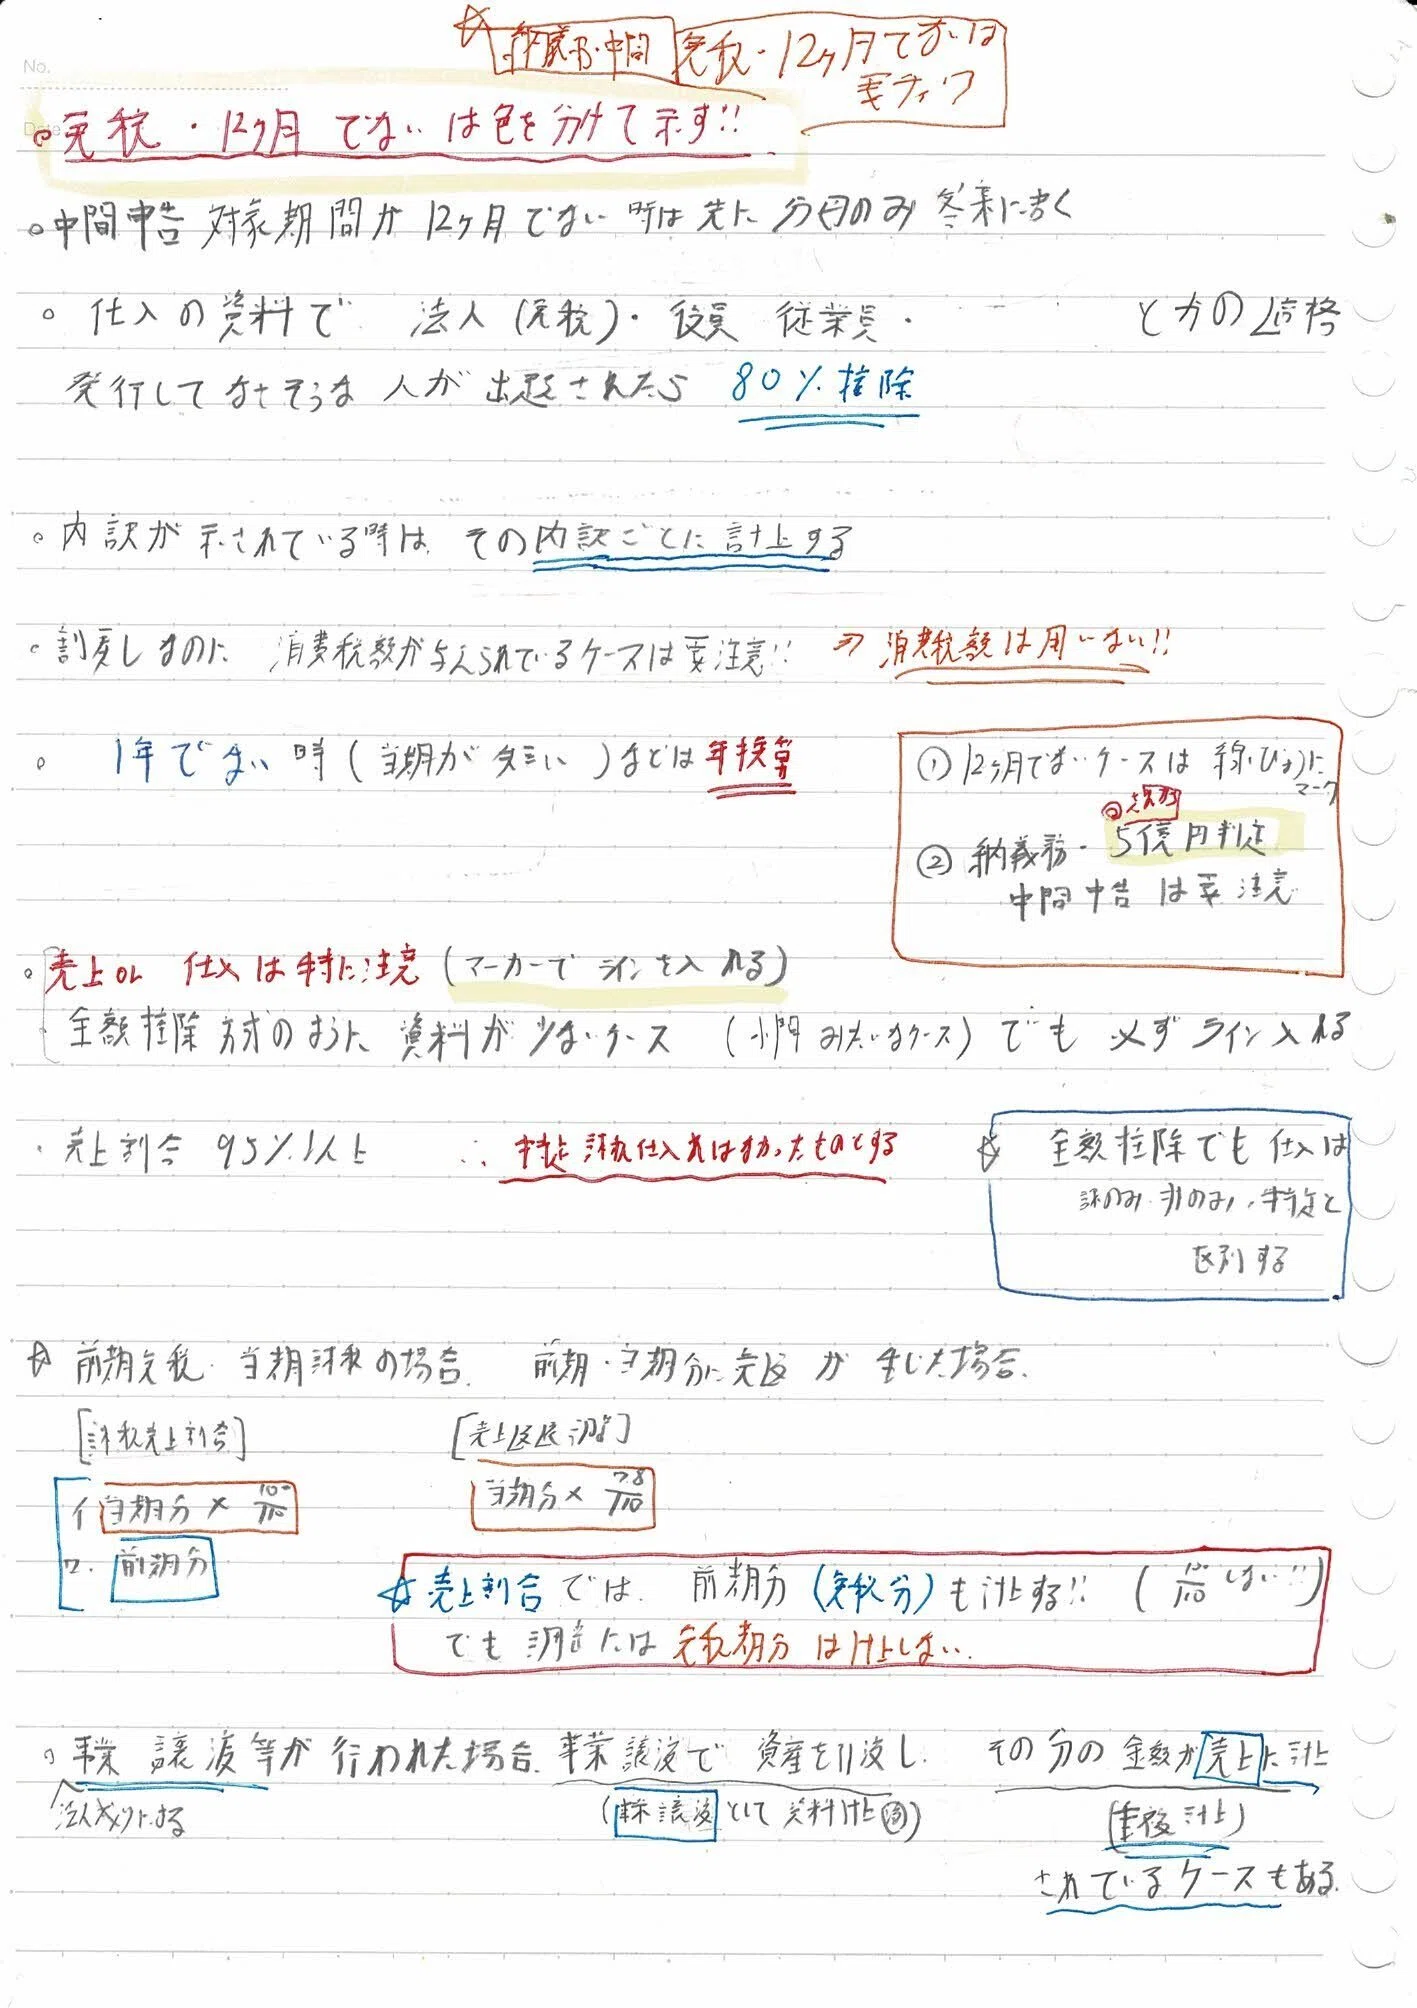 納義務・中間 免税・12ヶ月でないは
要チェック
No.
Date
免税・12ヶ月でないは色を分けて示す!!
中間申告 対象期間が12ヶ月でない時は先に分母のみ答案に書く
仕入の資料で 法人(免税)・役員 従業員・ とかの適格
発行してなさそうな人が出題されたら 80%控除
内訳が示されている時は その内訳ごとに計上する
割戻しなのに 消費税額が与えられているケースは要注意!! ⇒ 消費税額は用いない!!
1年でない時(当期が短い)などは年換算
① 12ヶ月でないケースは 線ひように
マーク
◎
② 納義務・5億円判定
中間申告は要注意
売上or 仕入は特に注意(マーカーでラインを入れる)
全額控除方式のように 資料が少ないケース (小問みたいなケース)でも必ずライン入れる
売上割合 95%以上 ∴ 特定課税仕入れはなかったものとする
☆ 全額控除でも仕入は
課のみ・非のみ・特定と
区別する
☆ 前期免税・当期課税の場合. 前期・当期分に売返が生じた場合.
[課税売上割合] [売上返還 調整]
イ 当期分 × 100/110 当期分 × 7.8/110
ロ. 前期分
☆売上割合では 前期分(免税分)も計上する!! (100/110しない!!)
でも調整には免税期分は計上しない.
事業譲渡等が行われた場合. 事業譲渡で 資産を引渡し. その分の金額が売上に計上
法人成りにする (事業譲渡として資料計上済) (重複計上)
されているケースもある.